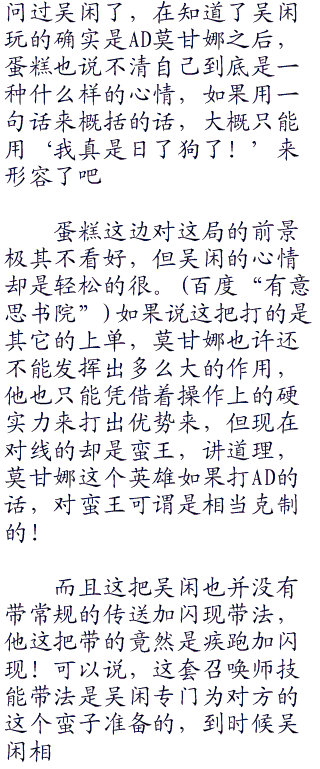 问过吴闲了，在知道了吴闲
玩的确实是AD莫甘娜之后，
蛋糕也说不清自己到底是一
种什么样的心情，如果用一
句话来概括的话，大概只能
用‘我真是日了狗了！’来
形容了吧
蛋糕这边对这局的前景
极其不看好，但吴闲的心情
却是轻松的很。(百度“有意
思书院”)如果说这把打的是
其它的上单，莫甘娜也许还
不能发挥出多么大的作用，
他也只能凭借着操作上的硬
实力来打出优势来，但现在
对线的却是蛮王，讲道理，
莫甘娜这个英雄如果打AD的
话，对蛮王可谓是相当克制
的！
而且这把吴闲也并没有
带常规的传送加闪现带法，
他这把带的竟然是疾跑加闪
现！可以说，这套召唤师技
能带法是吴闲专门为对方的
这个蛮子准备的，到时候吴
闲相